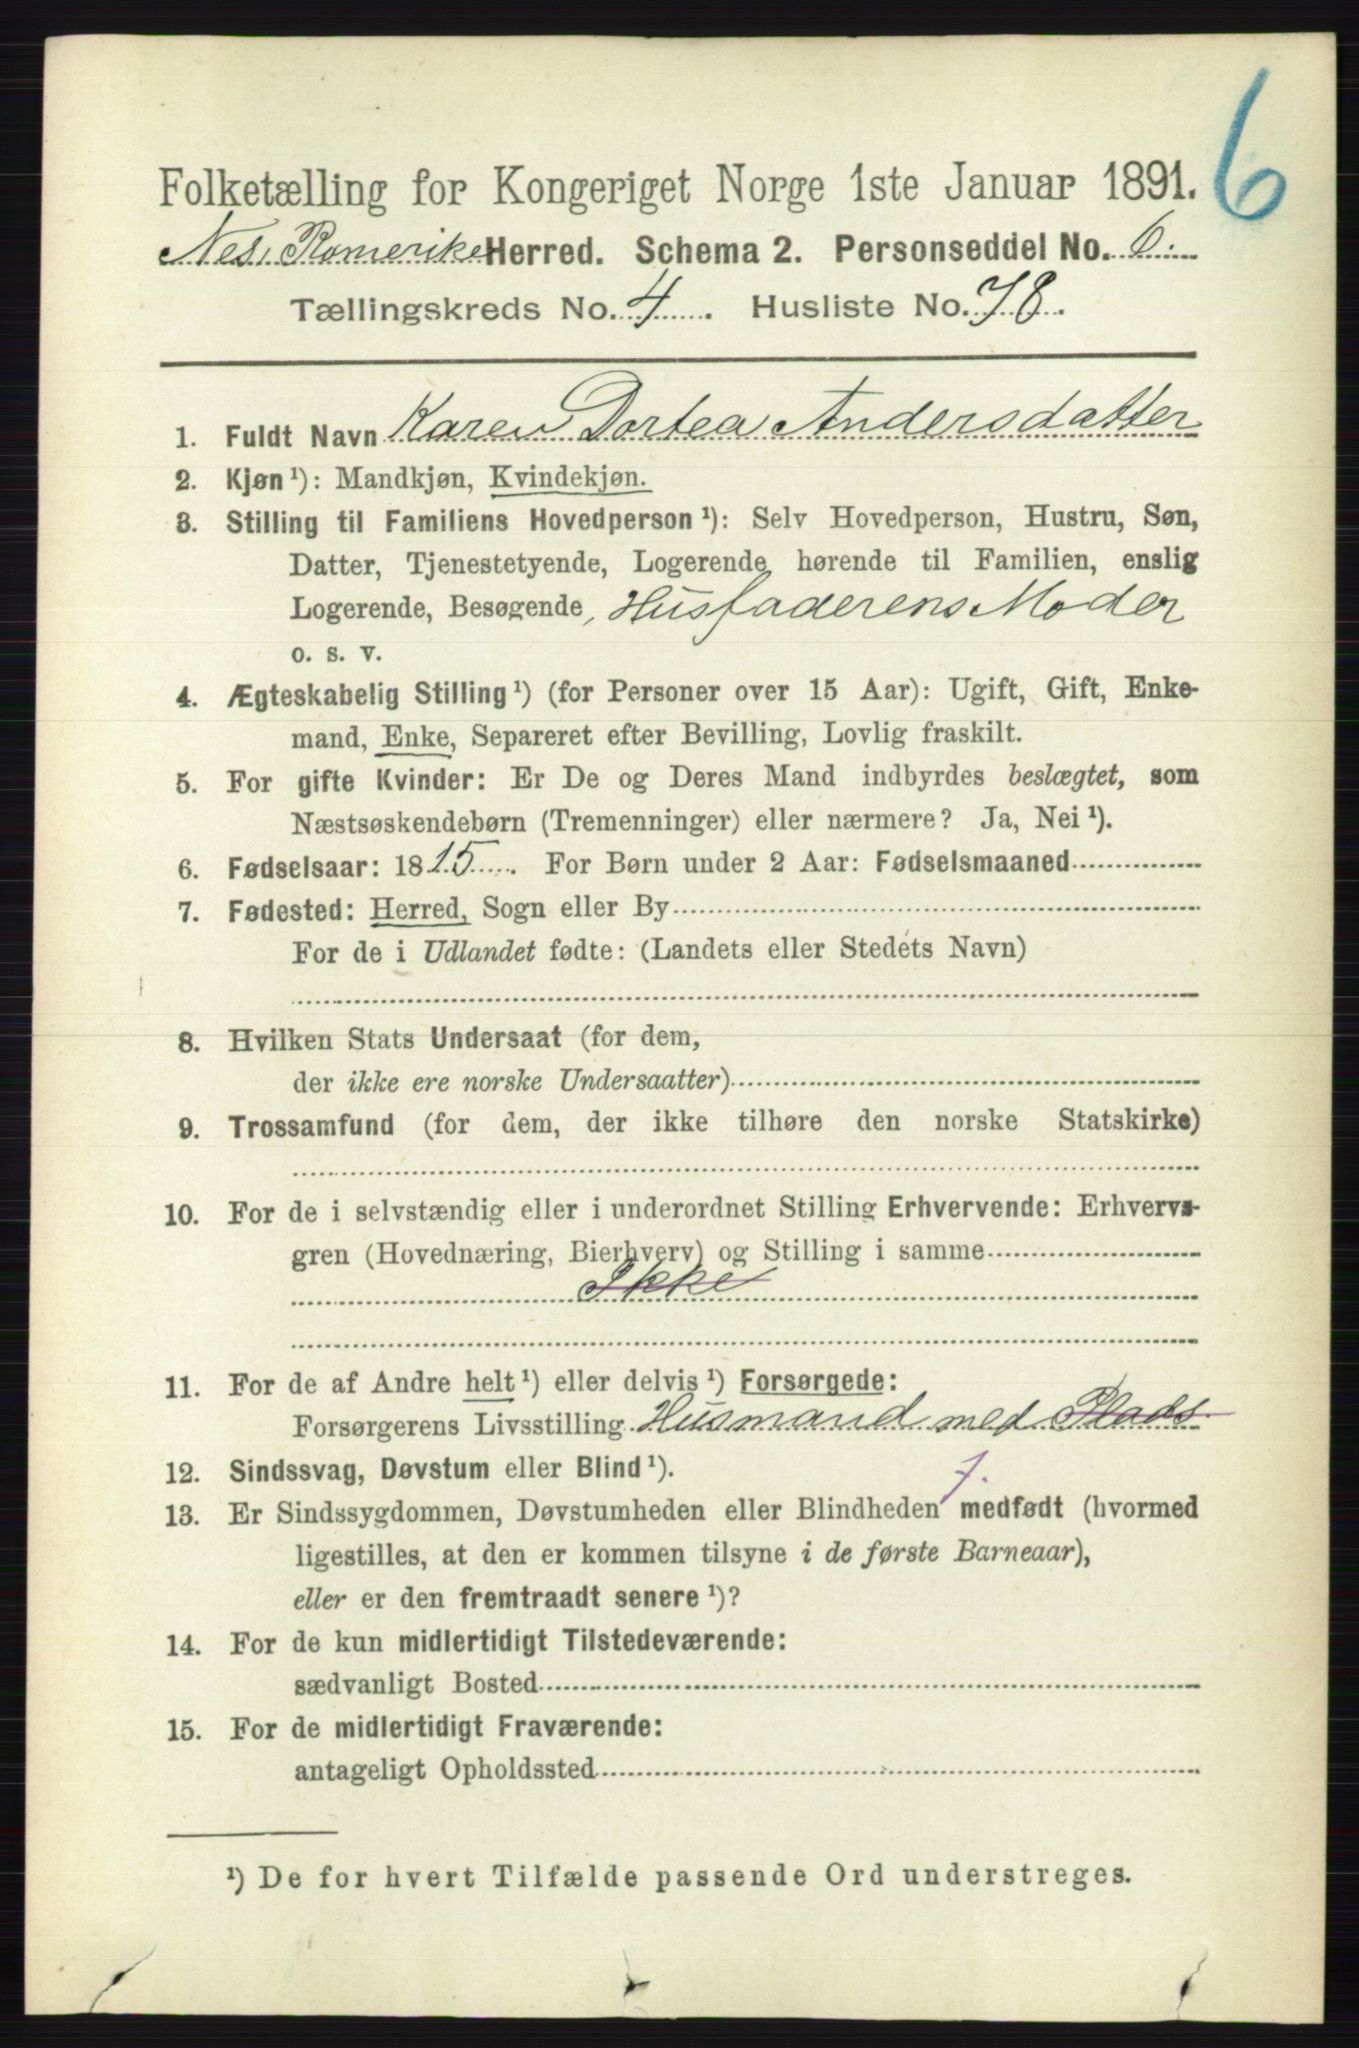 6
Folketælling for Kongeriget Norge 1ste Januar 1891.
Nes, Romerike Herred. Schema 2. Personseddel No. 6.
Tællingskreds No. 4. Husliste No. 78.
1. Fuldt Navn Karen Dortea Andersdatter
2. Kjøn ¹): Mandkjøn, Kvindekjøn.
3. Stilling til Familiens Hovedperson ¹): Selv Hovedperson, Hustru, Søn,
Datter, Tjenestetyende, Logerende hørende til Familien, enslig
Logerende, Besøgende, Husfaderens Moder
o. s. v.
4. Ægteskabelig Stilling ¹) (for Personer over 15 Aar): Ugift, Gift, Enke-
mand, Enke, Separeret efter Bevilling, Lovlig fraskilt.
5. For gifte Kvinder: Er De og Deres Mand indbyrdes beslægtet, som
Næstsøskendebørn (Tremenninger) eller nærmere? Ja, Nei ¹).
6. Fødselsaar: 1815. For Børn under 2 Aar: Fødselsmaaned
7. Fødested: Herred, Sogn eller By
For de i Udlandet fødte: (Landets eller Stedets Navn)
8. Hvilken Stats Undersaat (for dem,
der ikke ere norske Undersaatter)
9. Trossamfund (for dem, der ikke tilhøre den norske Statskirke)
10. For de i selvstændig eller i underordnet Stilling Erhvervende: Erhvervs-
gren (Hovednæring, Bierhverv) og Stilling i samme
Ikke
11. For de af Andre helt ¹) eller delvis ¹) Forsørgede:
Forsørgerens Livsstilling Husmand med Plads
12. Sindssvag, Døvstum eller Blind ¹).
7.
13. Er Sindssygdommen, Døvstumheden eller Blindheden medfødt (hvormed
ligestilles, at den er kommen tilsyne i de første Barneaar),
eller er den fremtraadt senere ¹)?
14. For de kun midlertidigt Tilstedeværende:
sædvanligt Bosted
15. For de midlertidigt Fraværende:
antageligt Opholdssted
¹) De for hvert Tilfælde passende Ord understreges.